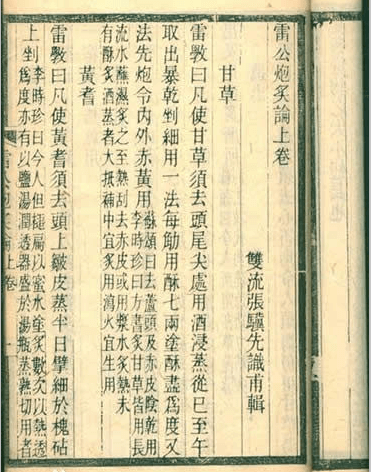 雷公炮炙論上卷
雙流張驥先識甫輯
甘草
雷斅曰凡使甘草須去頭尾尖處用酒浸蒸從巳至午
取出暴乾剉細用一法每觔用酥七兩塗酥盡爲度又
法先炮令內外赤黃用
蘇頌曰去蘆頭及赤皮陰乾用
李時珍曰方書炙甘草皆用長
流水蘸濕炙之至熟刮去赤皮或用漿水炙熟未
有酥炙酒蒸者大抵補中宜炙用瀉火宜生用
黃耆
雷斅曰凡使黃耆須去頭上皺皮蒸半日擘細於槐砧
上剉
李時珍曰今人但搥扁以蜜水塗炙數次以熟
爲度亦有以鹽湯潤透器盛於湯瓶蒸熟切用者
雷公炮炙論 上卷
一